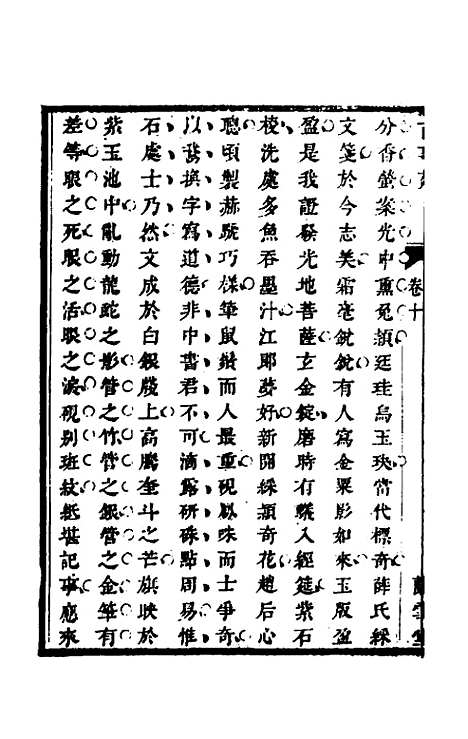 卷十
分香螢案光中熏兔穎廷珪烏玉玦當代標奇薛氏綵
文箋於今志美霜毫銳銳有人寫金粟影如來玉版盈
盈是我證發光地菩薩玄金錠磨時有蟻入經筵紫石
校洗處多魚吞墨汁江郎夢好新開綵頴奇花趙后心
聰頃製赫蹏巧樣筆鼠鬚而人最重硯鳳咮而士爭奇
以鵞換字寫道德非中書君不可滴露研硃點周易惟
石處士乃然文成於白銀牋上高騰奎斗之芒旗映於
紫玉池中亂動龍蛇之影管之竹管之銀管之金筆有
差等眼之死眼之活眼之淚硯別斑紋紙堪記事應來